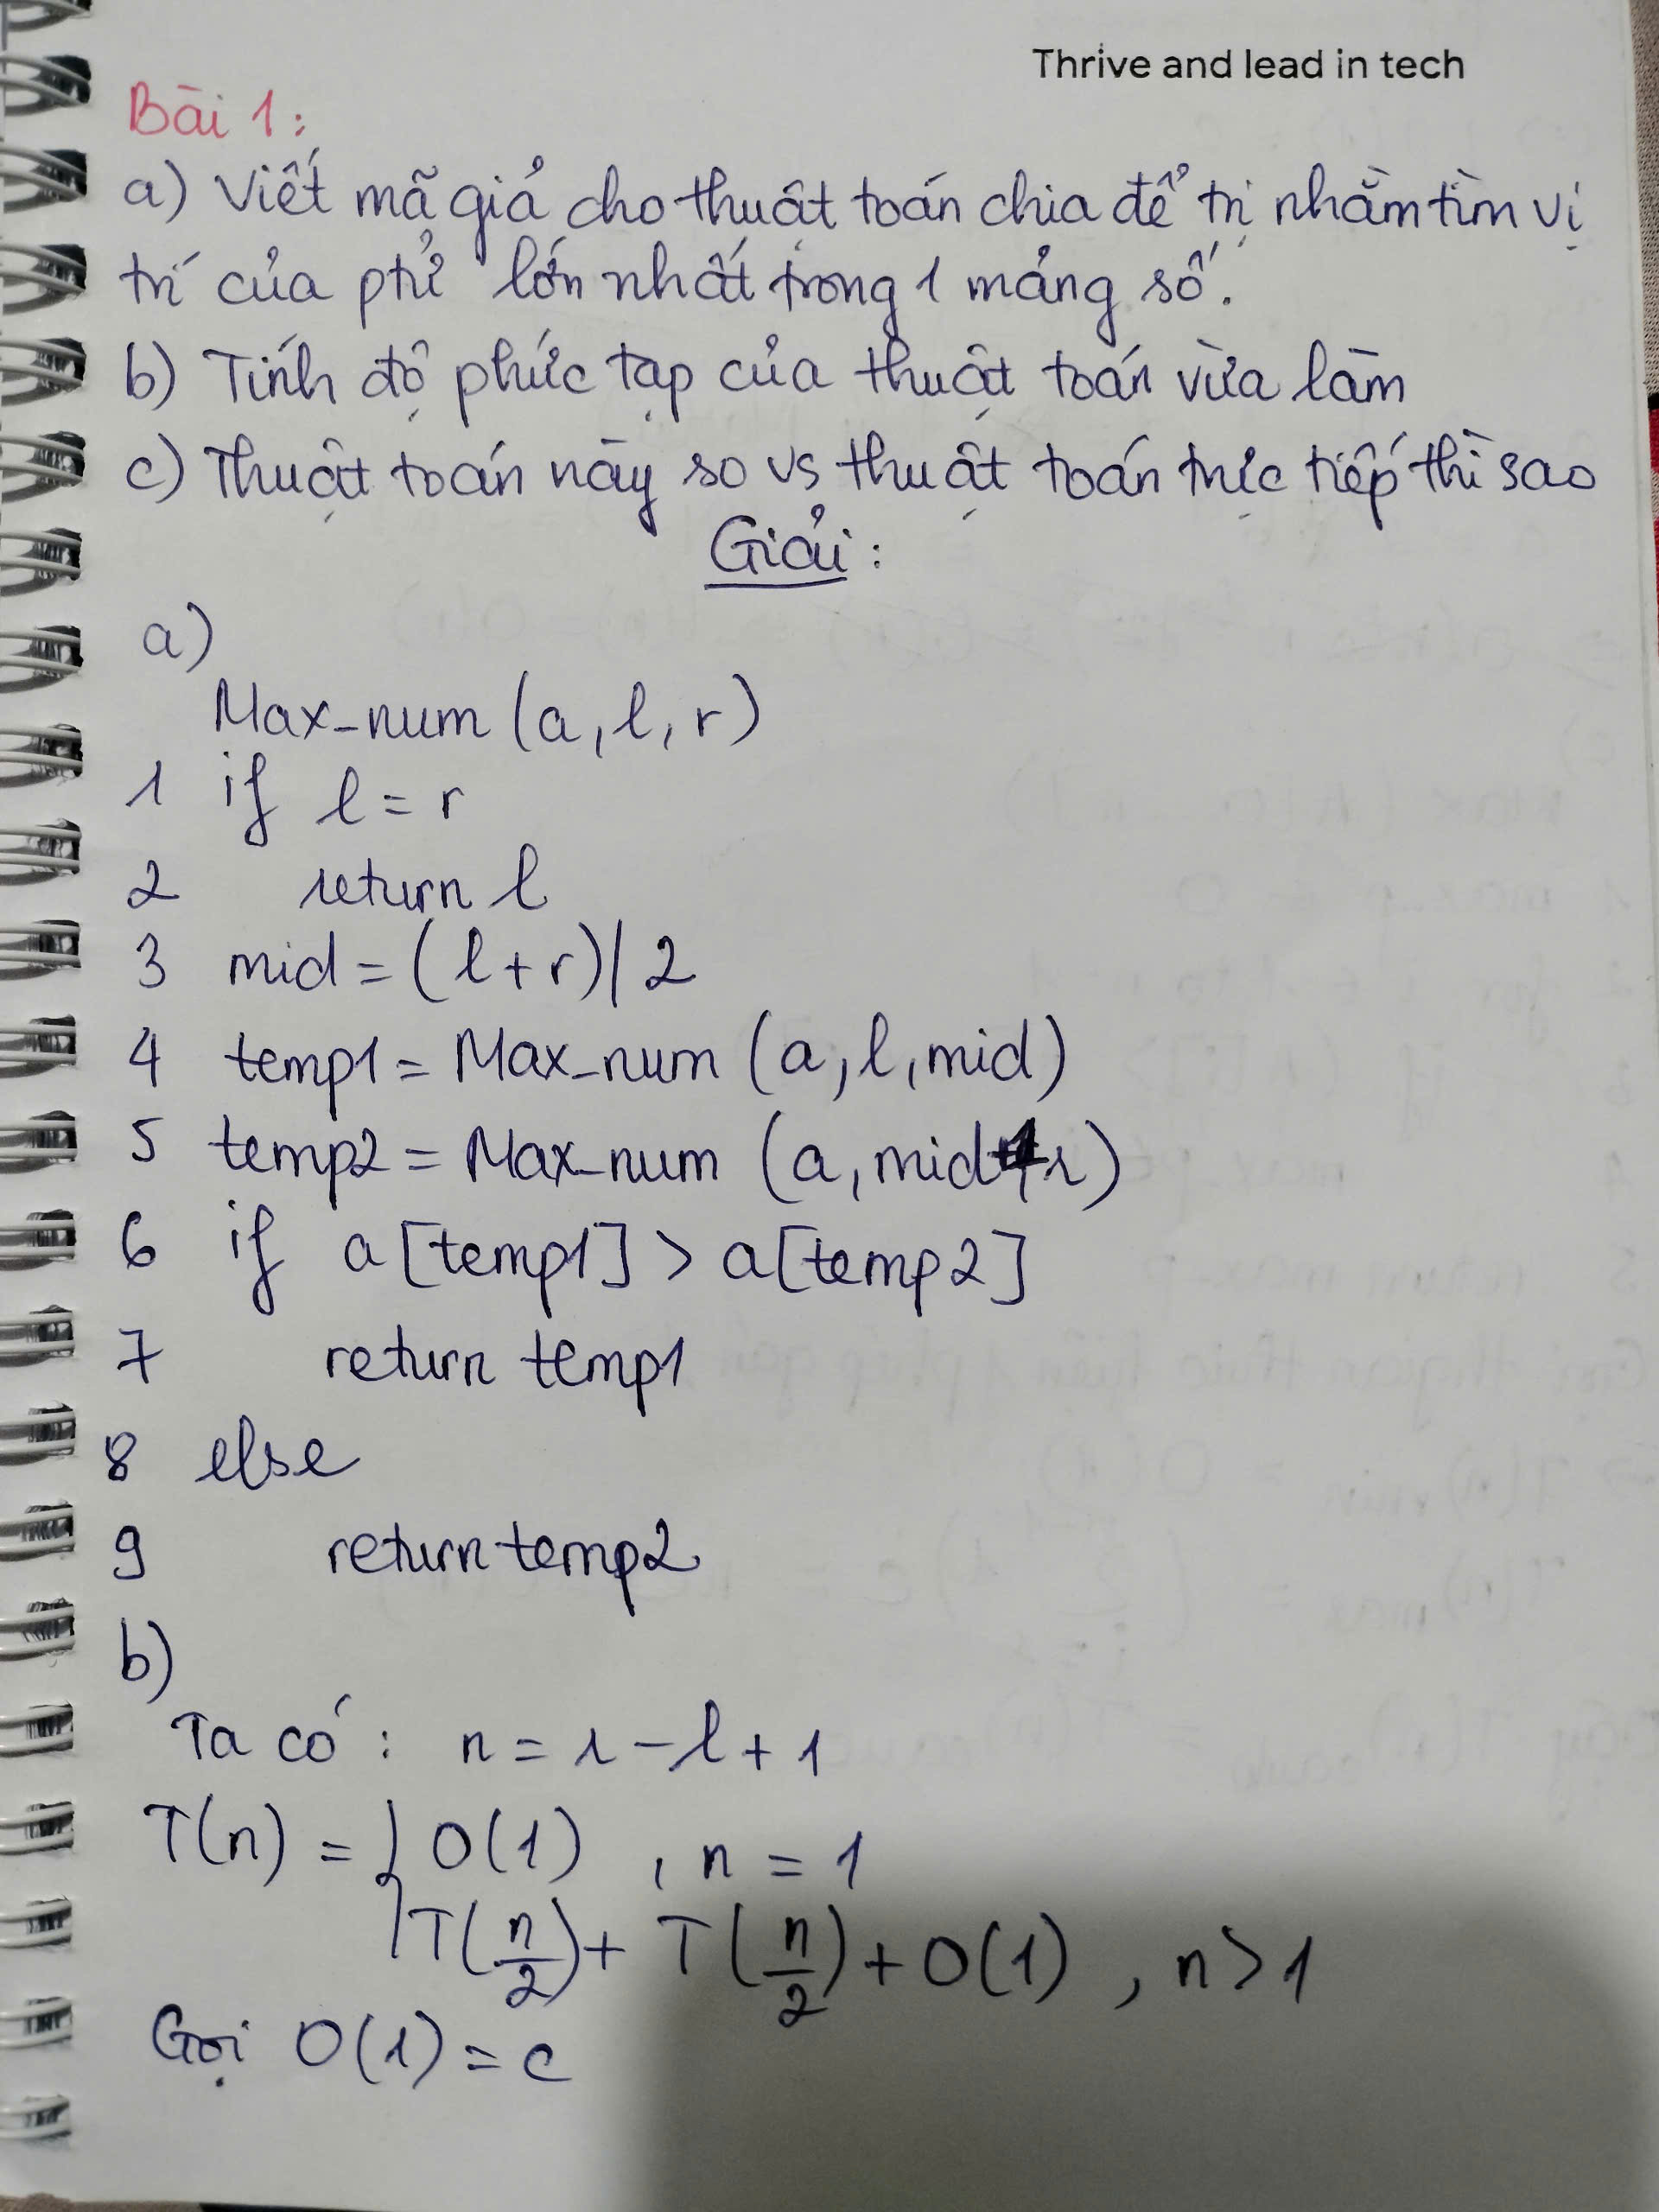 Thrive and lead in tech
Bài 1:
a) Viết mã giả cho thuật toán chia để trị nhằm tìm vị
trí của ptử lớn nhất trong 1 mảng số.
b) Tính độ phức tạp của thuật toán vừa làm
c) Thuật toán này so vs thuật toán trực tiếp thì sao
Giải:
a)
Max_num (a, l, r)
1 if l = r
2 return l
3 mid = (l + r) / 2
4 temp1 = Max_num (a, l, mid)
5 temp2 = Max_num (a, mid+1, r)
6 if a[temp1] > a[temp2]
7 return temp1
8 else
9 return temp2
b)
Ta có : n = r - l + 1
T(n) = { O(1) , n = 1
T(n/2) + T(n/2) + O(1) , n > 1
Gọi O(1) = c